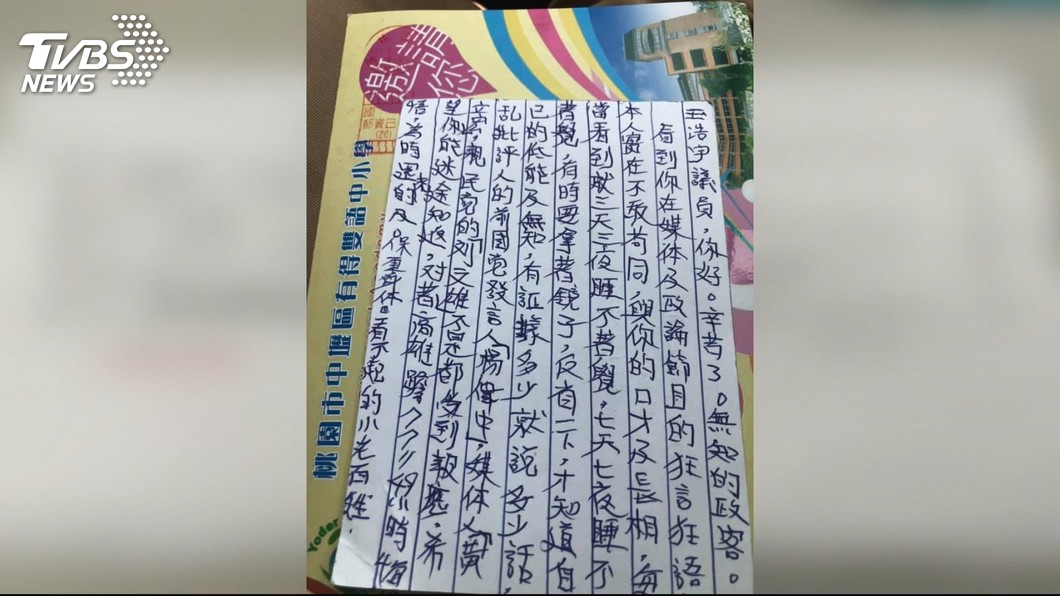 TVBS
NEWS
邀請您
王浩宇議員，你好。辛苦了。無知的政客。
看到你在媒体及政論節目的狂言狂語
本人實在不敢苟同，與你的口才及長相，每
當看到就三天三夜睡不著覺，七天七夜睡不
著覺，有時要拿著鏡子，反省一下，才知道自
已的低能及無知，有証據多少就說多少話，
乱批評人的前國党發言人「楊偉中」，媒体人「黃
，親民党的「刘文雄不是都受到報應，希
望你能迷途知返，对著高雄
悟，為時還
保重身体。看不起的小老百姓．
桃園市中壢區有得雙語中小學
Yoder